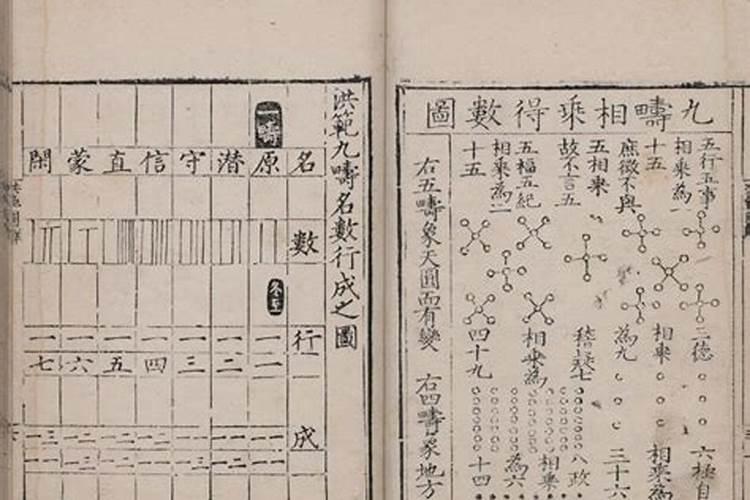 九疇相乘得數圖
五行五事
相乘為
十五
庶徵不與
五相乘
故不言五
五福五紀
相乘為二
十五
三德
相乘
為九
稽疑七
相乘為
四十九
六極自
相乘為
三十六
八政
相乘
為六
十四
右五疇象天圓而有變
右四疇象地方
洪範九疇名數行成之圖
一疇
名原潛守信直蒙閑
數
冬至
行一一一一一一一
一二三四五六七
成